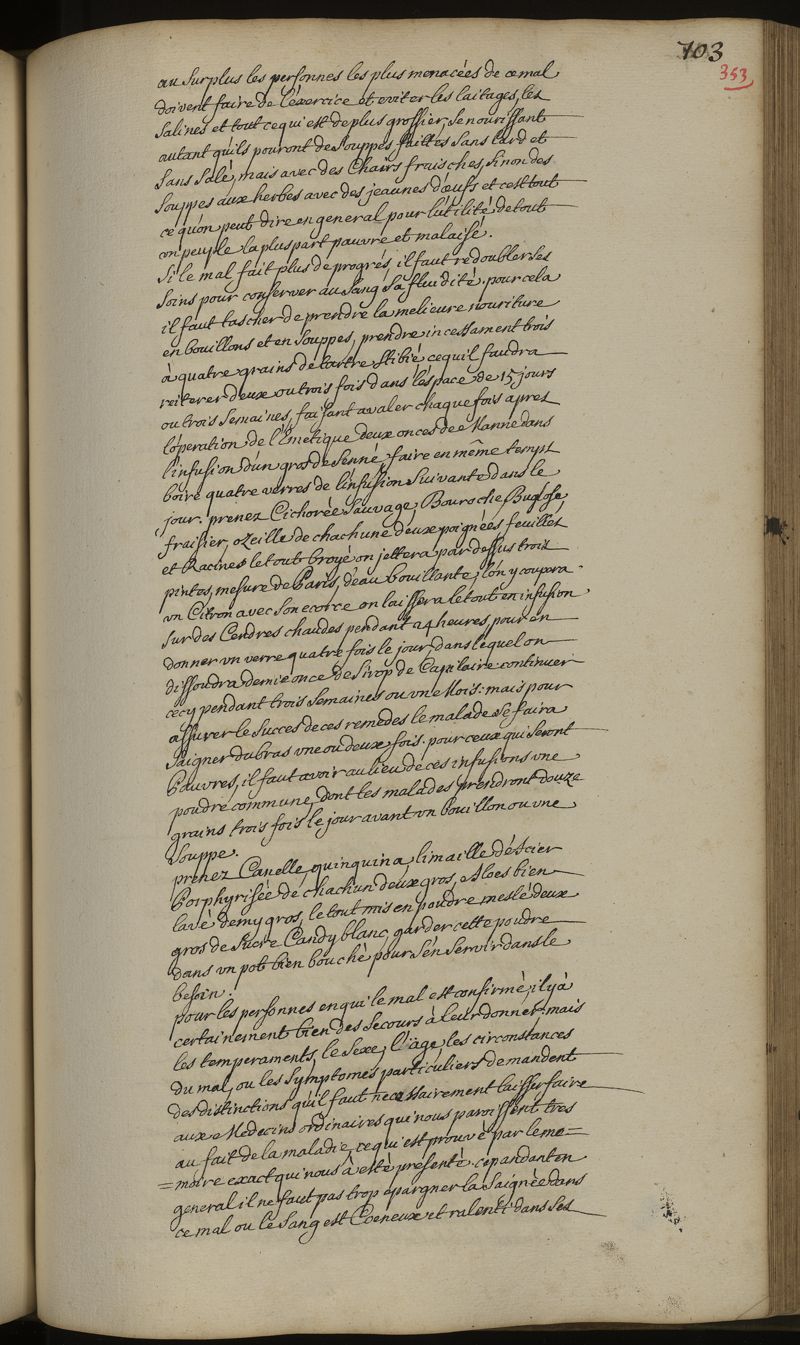 703
353
au surplus les personnes les plus menacées de ce mal
doivent faire de l'éxercice et eviter les laitages, les
salines et tout ce qui est de plus grossier, se nourissant
autant qu'ils pouront de souppes faittes sans lard et
sans salé, mais avec des Chairs fraisches, sinon des
souppes aux herbes avec des jeaunes d'œufs et c'est tout
ce qu'on peut dire en general pour l'utilité de tout
un peuple la pluspart pauvre et malaisé.
Si le mal fait plus de progrés, il faut redoubler ses
soins pour conserver au sang sa fluidité. pour cela
il faut tascher de prendre la melieure nouriture
en bouillons et en souppes, prendre incessament trois
à quatre grains de tartre stibié, ce qu'il faudra
reiterer deux ou trois fois dans l'éspace de 15 jours
ou trois semaines, faisant avaler chaque fois apres
l'operation de l'Emetique deux onces de Manne dans
l'infusion d'un gros de senné, faire en même temps
boire quatre verres de l'infusion suivante dans le
jour. prenez Cichorée sauvage, Bouroche, Buglose,
fraisier, ozeille de chachune deux poignées, feuilles
et Racines le tout broyé on jettera par dessus trois
pintes, mesure de Paris, d'éau bouillante, l'on y coupera
un Citron avec son ecorce on laissera le tout en infusion
sur des Cendres chaudes pendant 24 heures, pour en
donner un verre quatre fois le jour, dans lequel on
dissoudra demie once de Sirop de Capilaire. continuer
cecy pendant trois semaines ou un Mois: mais pour
assurer le succes de ces remedes le malade se faira
saigner du bras une ou deux fois. pour ceux qui seront
Pauvres, il faut avoir au lieu de ces infusions une
poudre commune, dont les malades prendront douze
grains trois fois le jour avant un bouillon ou une
souppe.
prenez Canelle, quinquina, limaille d'Acier
Porphyrisée de chachun deux gros, Aloes bien
lavé demy gros, le tout mis en poudre meslé deux
gros de Sucre Candy blanc, garder cette poudre
dans un pot bien bouché pour s'én servir dans le
besoin.
pour les personnes en qui le mal est confirmé, il y à
certainement bien des secours à leur donner: mais
les temperaments, le Sexe, l'âge, les circonstances
du mal, ou les symptomes particuliers demandent
des distinctions qu'il faut necessairement laisser faire
aux Medecins ordinaires qui nous paroissent tres
au fait de la maladie, ce qui est prouvé par le me=
=moire exact qui nous à esté présenté. cependant en
general il ne faut pas trop épargner la saignée dans
ce mal ou le sang est Coeneux et ralenti dans ses